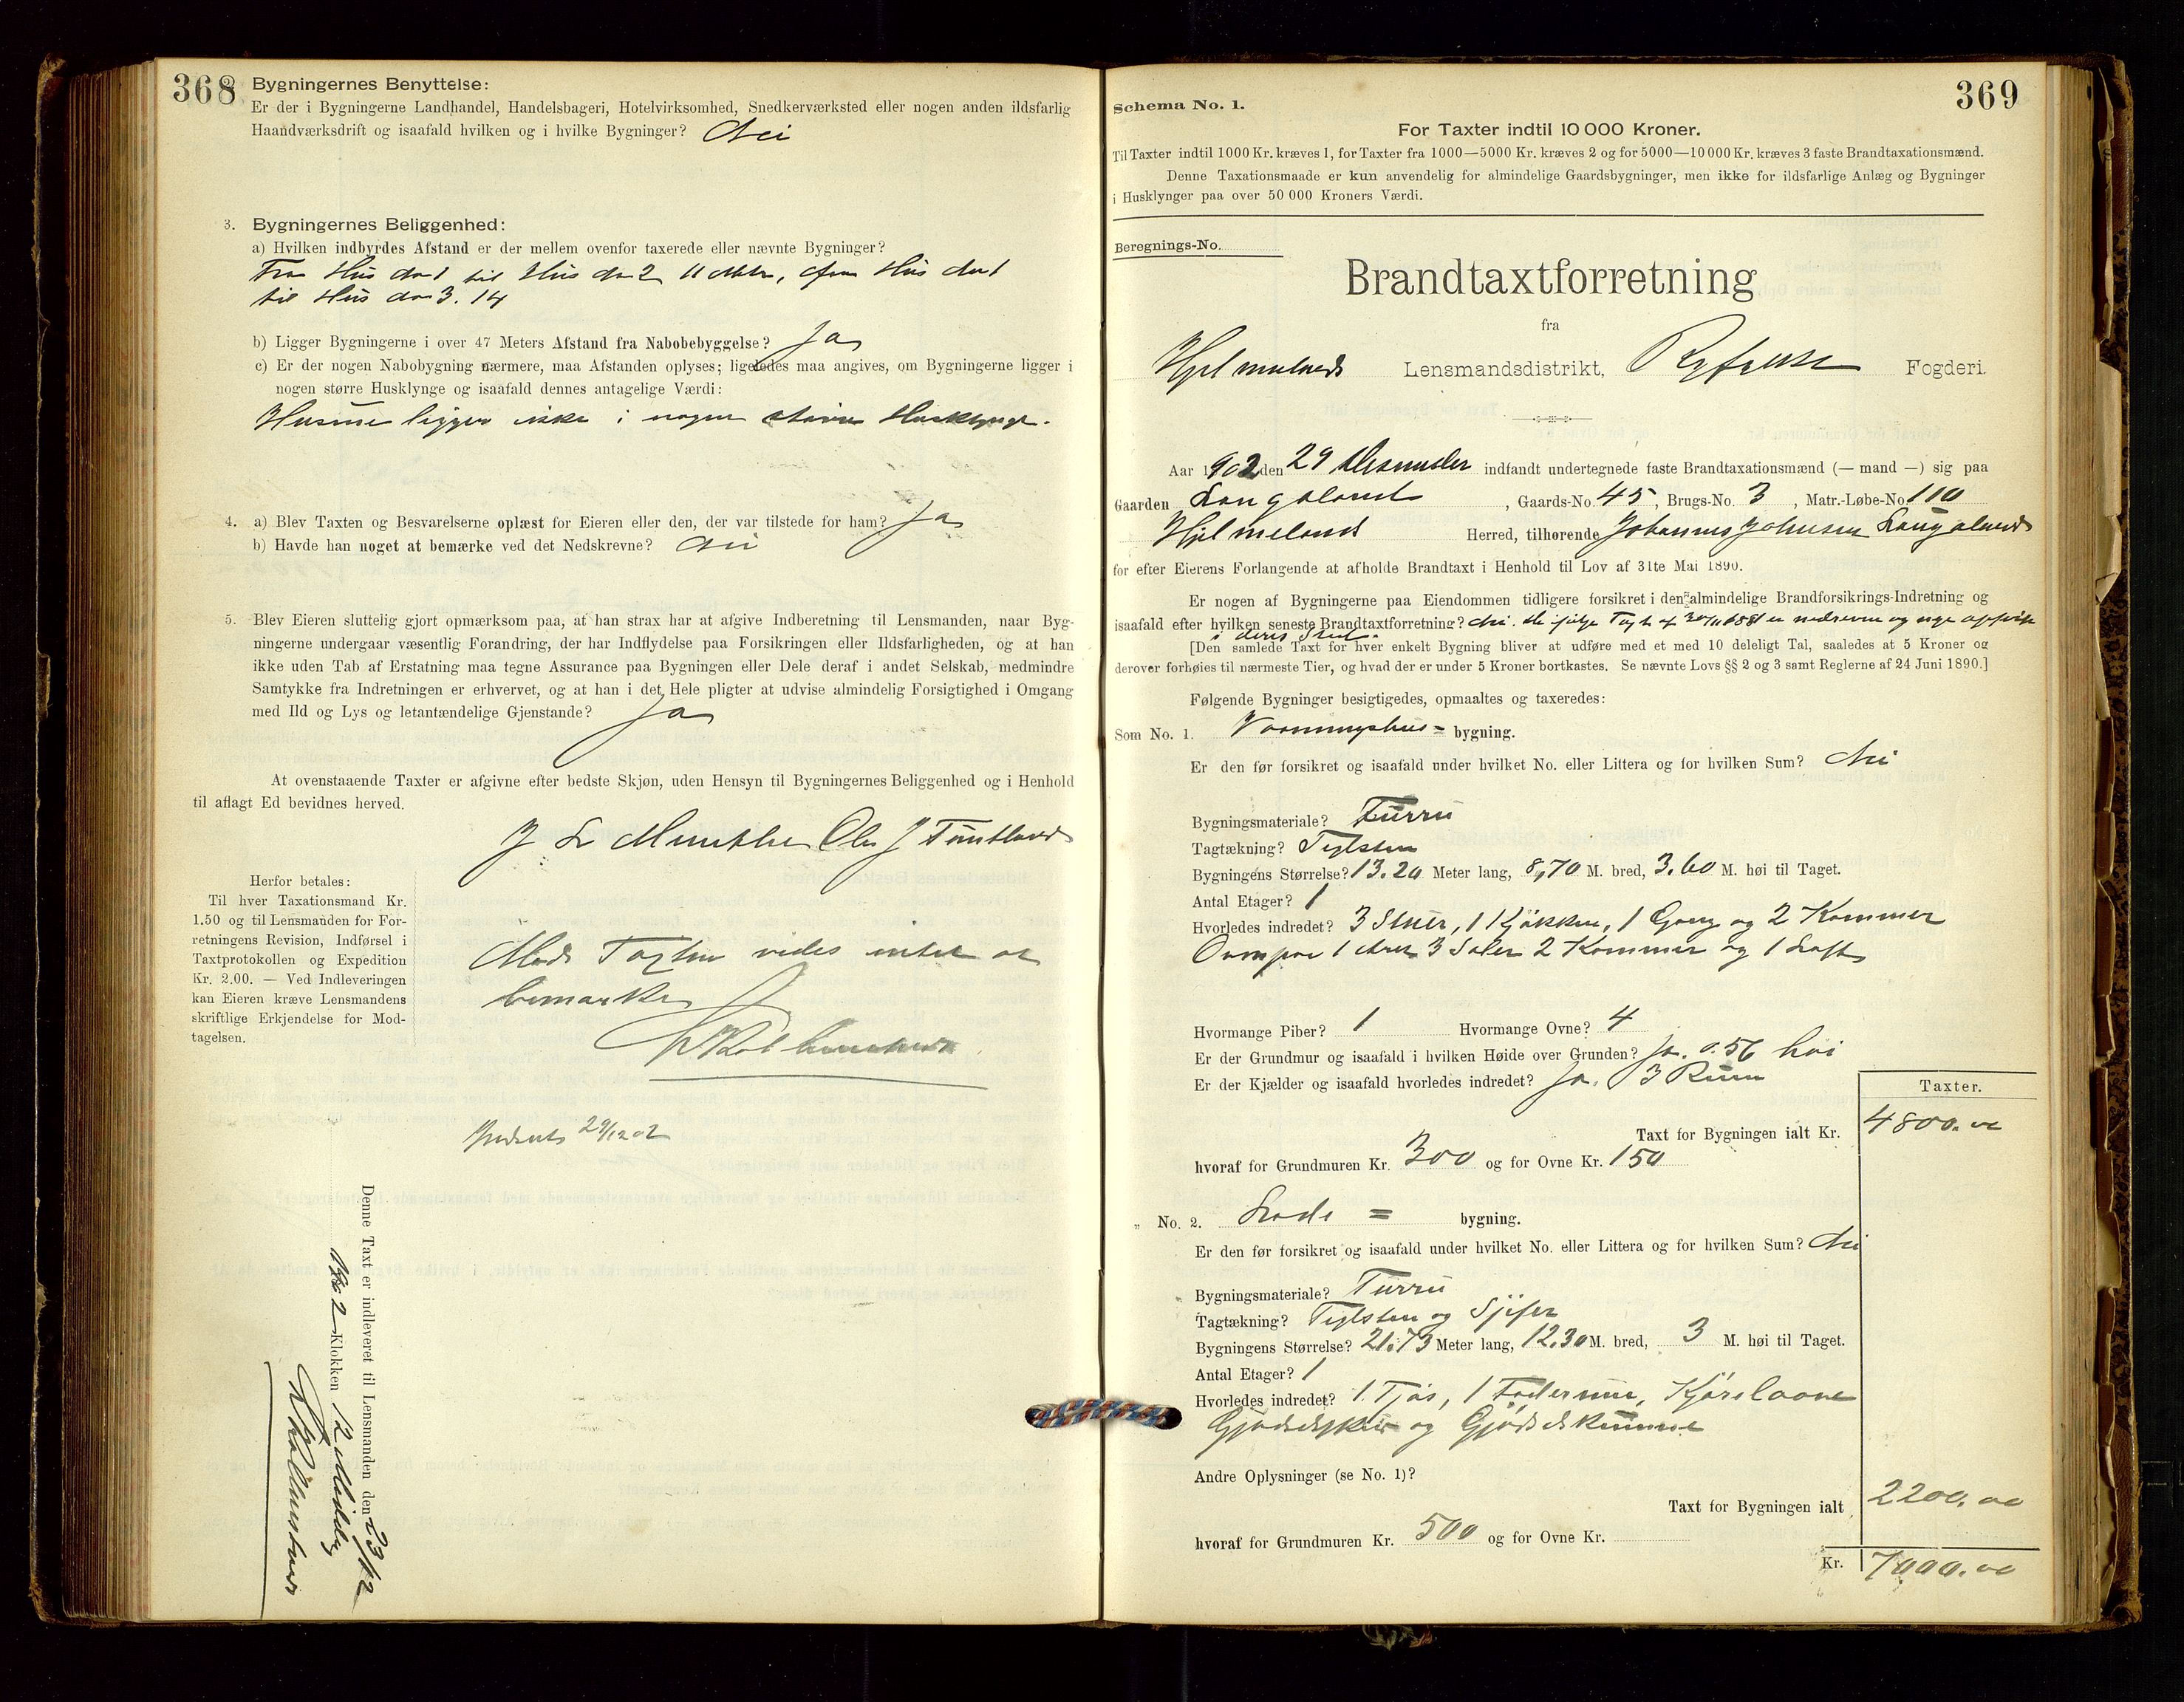 368
Bygningernes Benyttelse:
Er der i Bygningerne Landhandel, Handelsbageri, Hotelvirksomhed, Snedkerværksted eller nogen anden ildsfarlig
Haandværksdrift og isaafald hvilken og i hvilke Bygninger? Nei
3. Bygningernes Beliggenhed:
a) Hvilken indbyrdes Afstand er der mellem ovenfor taxerede eller nævnte Bygninger?
Fra Hus No 1 til Hus No 2 11 Meter, fra Hus No 1
til Hus No 3. 14
b) Ligger Bygningerne i over 47 Meters Afstand fra Nabobebyggelse? Ja
c) Er der nogen Nabobygning nærmere, maa Afstanden oplyses; ligeledes maa angives, om Bygningerne ligger i
nogen større Husklynge og isaafald dennes antagelige Værdi:
Husene ligger ikke i nogen større Husklynge.
4. a) Blev Taxten og Besvarelserne oplæst for Eieren eller den, der var tilstede for ham? Ja
b) Havde han noget at bemærke ved det Nedskrevne? Nei
5. Blev Eieren sluttelig gjort opmærksom paa, at han strax har at afgive Indberetning til Lensmanden, naar Byg-
ningerne undergaar væsentlig Forandring, der har Indflydelse paa Forsikringen eller Ildsfarligheden, og at han
ikke uden Tab af Erstatning maa tegne Assurance paa Bygningen eller Dele deraf i andet Selskab, medmindre
Samtykke fra Indretningen er erhvervet, og at han i det Hele pligter at udvise almindelig Forsigtighed i Omgang
med Ild og Lys og letantændelige Gjenstande? Ja
At ovenstaaende Taxter er afgivne efter bedste Skjøn, uden Hensyn til Bygningernes Beliggenhed og i Henhold
til aflagt Ed bevidnes herved.
J L Munthe Ole J Tuntland
Herfor betales:
Til hver Taxationsmand Kr.
1.50 og til Lensmanden for For-
retningens Revision, Indførsel i
Taxtprotokollen og Expedition
Kr. 2.00. — Ved Indleveringen
kan Eieren kræve Lensmandens
skriftlige Erkjendelse for Mod-
tagelsen.
Mod Taxten vides intet at
bemærke
29/12 02
Denne Taxt er indleveret til Lensmanden den 23/12
1902 Klokken 12 Middag
369
Schema No. 1.
For Taxter indtil 10 000 Kroner.
Til Taxter indtil 1000 Kr. kræves 1, for Taxter fra 1000—5000 Kr. kræves 2 og for 5000—10 000 Kr. kræves 3 faste Brandtaxationsmænd.
Denne Taxationsmaade er kun anvendelig for almindelige Gaardsbygninger, men ikke for ildsfarlige Anlæg og Bygninger
i Husklynger paa over 50 000 Kroners Værdi.
Beregnings-No.
Brandtaxtforretning
fra
Hjelmelands Lensmandsdistrikt, Ryfylke Fogderi.
Aar 1902 den 29 Desember indfandt undertegnede faste Brandtaxationsmænd (— mand —) sig paa
Gaarden Langaland, Gaards-No. 45, Brugs-No. 3, Matr.-Løbe-No. 110
Hjelmeland Herred, tilhørende Johannes Johnsen Langaland
for efter Eierens Forlangende at afholde Brandtaxt i Henhold til Lov af 31te Mai 1890.
Er nogen af Bygningerne paa Eiendommen tidligere forsikret i den almindelige Brandforsikrings-Indretning og
isaafald efter hvilken seneste Brandtaxtforretning? Nei. De ifølge Taxt af er nedrevne og nye opført
i deres Sted.
[Den samlede Taxt for hver enkelt Bygning bliver at udføre med et med 10 deleligt Tal, saaledes at 5 Kroner og
derover forhøies til nærmeste Tier, og hvad der er under 5 Kroner bortkastes. Se nævnte Lovs §§ 2 og 3 samt Reglerne af 24 Juni 1890.]
Følgende Bygninger besigtigedes, opmaaltes og taxeredes:
Som No. 1. Vaaningshus= bygning.
Er den før forsikret og isaafald under hvilket No. eller Littera og for hvilken Sum? Nei
Bygningsmateriale? Furru
Tagtækning? Teglsten
Bygningens Størrelse? 13.20 Meter lang, 8,70 M. bred, 3.60 M. høi til Taget.
Antal Etager? 1
Hvorledes indredet? 3 Stuer, 1 Kjøkken, 1 Gang og 2 Kammer
Ovenpaa 1 Ark 3 Saler 2 Kammer og 1 Loft
Hvormange Piber? 1 Hvormange Ovne? 4
Er der Grundmur og isaafald i hvilken Høide over Grunden? Ja. 0.56 høi
Er der Kjælder og isaafald hvorledes indredet? Ja. 3 Rum
Taxter.
Taxt for Bygningen ialt Kr. 4800.00
hvoraf for Grundmuren Kr. 300 og for Ovne Kr. 150
„ No. 2. Lade = bygning.
Er den før forsikret og isaafald under hvilket No. eller Littera og for hvilken Sum? Nei
Bygningsmateriale? Furru
Tagtækning? Teglsten og Skifer
Bygningens Størrelse? 21.73 Meter lang, 12.30 M. bred, 3 M. høi til Taget.
Antal Etager? 1
Hvorledes indredet? 1 Fjøs, 1 Foderrum, Kjørelaave
og Gjødselskumme
Andre Oplysninger (se No. 1)?
Taxt for Bygningen ialt 2200.00
hvoraf for Grundmuren Kr. 500 og for Ovne Kr.
Kr. 7000.00